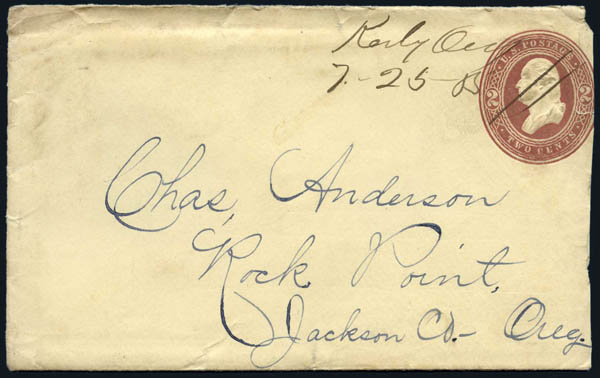 Kerby
7-25-85
U.S. POSTAGE
2 2
TWO CENTS
Chas, Anderson
Rock Point,
Jackson Co- Oreg.